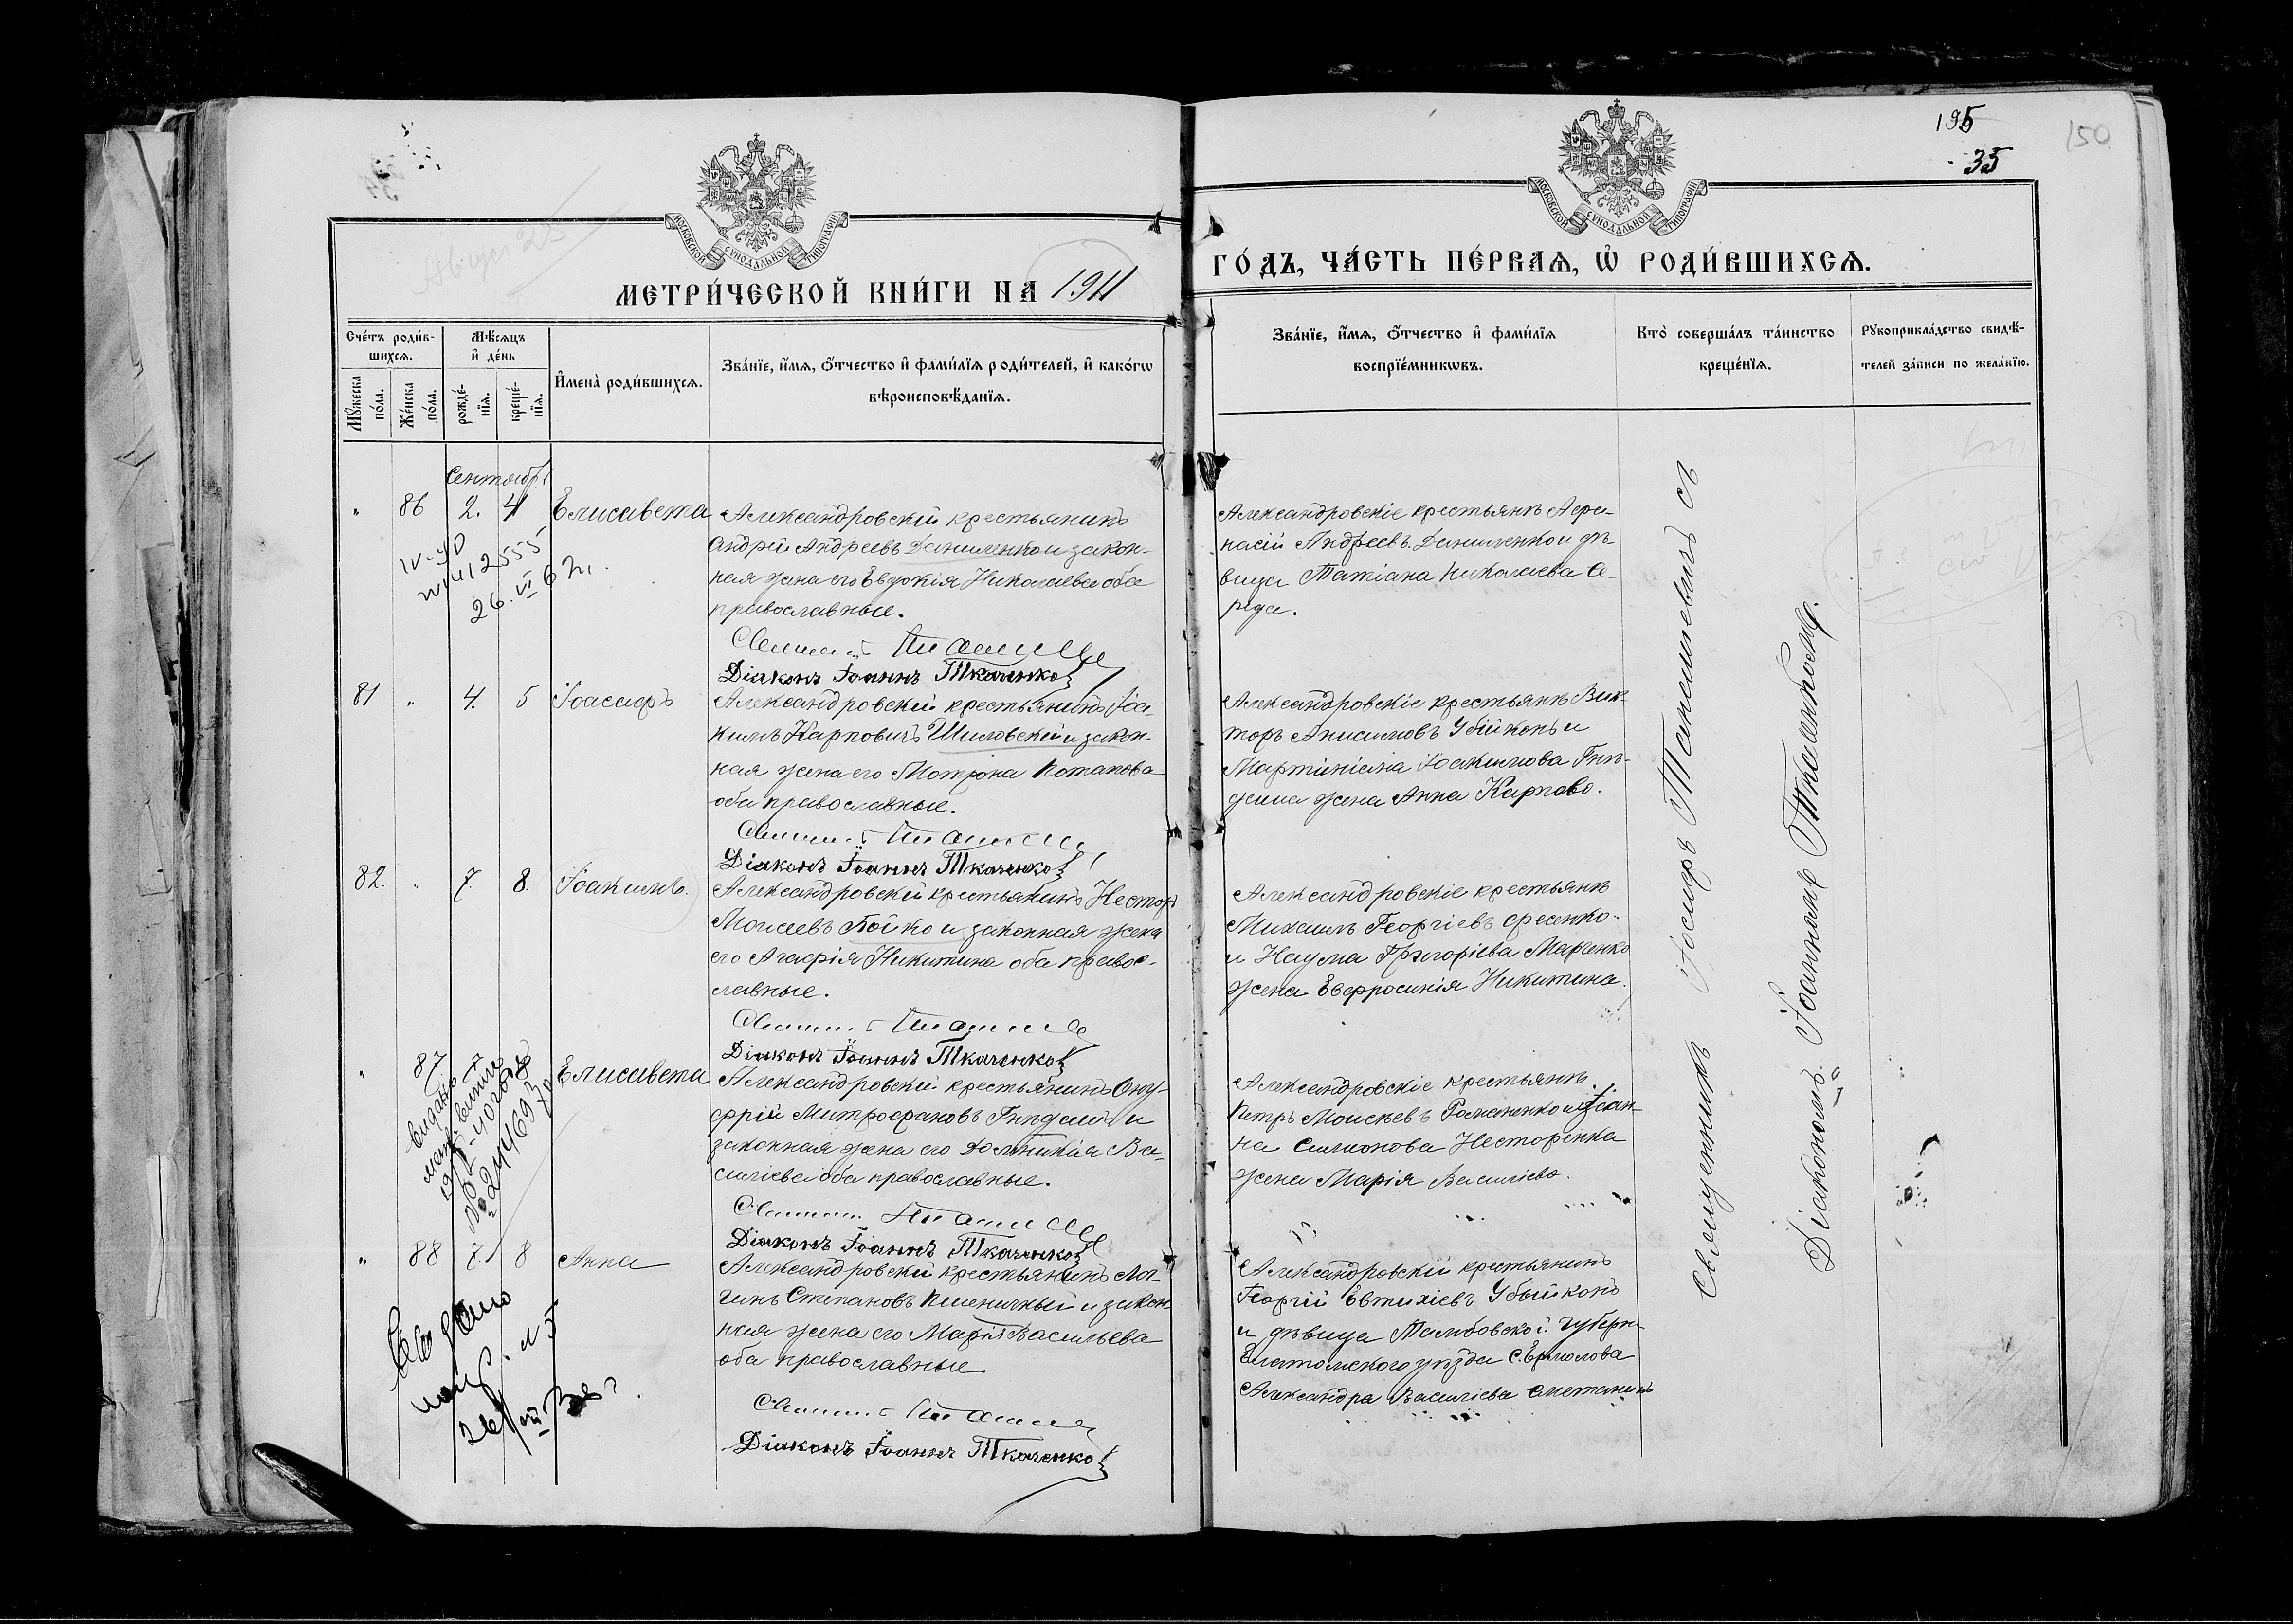 195
35
150
МОСКОВСКОЙ СѴНОДАЛЬНОЙ ТИПОГРАФІИ
МОСКОВСКОЙ СѴНОДАЛЬНОЙ ТИПОГРАФІИ
МЕТРИ́ЧЕСКОЙ КНИ́ГИ НА 1911
ГО́ДЪ, ЧА́СТЬ ПЕ́РВАЯ, Ѡ҆ РОДИ́ВШИХСЯ.
Сче́тъ роди́в-
шихся.
Мꙋ́жеска по́ла.
Же́нска по́ла.
Мѣ́сяцъ
и҆ де́нь
рожде́-
нїя.
креще́-
нїя.
И҆мена̀ роди́вшихся.
Зва́нїе, и҆́мя, ѻ҆́тчество и҆ фами́лїя роди́телей, и҆ како́гѡ
вѣроисповѣ́данїя.
Зва́нїе, и҆́мя, ѻ҆́тчество и҆ фами́лїя
воспрїе́мникѡвъ.
Кто̀ соверша́лъ та́инство
креще́нїя.
Рꙋкоприкла́дство свидѣ́-
телей за́писи по жела́нїю.
Сентябрь
" 86 2. 4 Елисавета
Александровскій крестьянинъ
Андрей Андреевъ Даниленко и закон-
ная жена его Евдокія Николаева оба
православные.
Діаконъ Іоаннъ Ткаченко
Александровскіе крестьяне Афа-
насій Андреевъ Даниленко и дѣ-
вица Татіана Николаева Се-
реда.
81 " 4. 5 Іоасафъ
Александровскій крестьянинъ Іоа-
кимъ Карповичъ Шиловскій и закон-
ная жена его Мотрона Потапова
оба православные.
Діаконъ Іоаннъ Ткаченко
Александровскіе крестьяне Вик-
торъ Анисимовъ Убійконь и
Мартиніана Іоакимова Гнѣ-
даша жена Анна Карпова.
82. " 7. 8. Іоакимъ.
Александровскій крестьянинъ Несторъ
Моисеевъ Бойко и законная жена
его Агафія Никитина оба право-
славные.
Діаконъ Іоаннъ Ткаченко
Александровскіе крестьяне
Михаилъ Георгіевъ Фесенко
и Наума Григоріева Марченко
жена Евфросинія Никитина.
" 87 7 8 Елисавета
Александровскій крестьянинъ Ону-
фрій Митрофановъ Гнѣдашъ и
законная жена его Домникія Ва-
силіева оба православные.
Діаконъ Іоаннъ Ткаченко
Александровскіе крестьяне
Петръ Моисеевъ Романенко и Іоан-
на Симонова Несторенка
жена Марія Василіева.
" 88 7. 8 Анна
Александровскій крестьянинъ Лог-
гинъ Степановъ Пшеничный и закон-
ная жена его Марія Васильева
оба православные
Діаконъ Іоаннъ Ткаченко
Александровскій крестьянинъ
Георгій Евтихіевъ Убійконь
и дѣвица Тамбовской губерн.
Елатомского уѣзда с. Ермолова
Александра Василіева Сметанина
Священникъ Іосифъ Танашевичъ съ
Діакономъ Іоанномъ Ткаченкомъ.